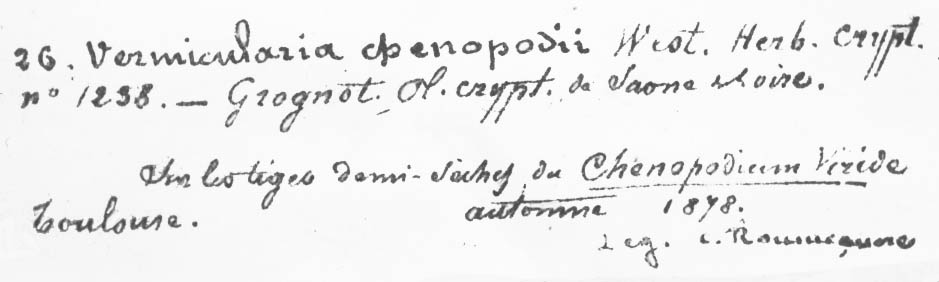 26. Vermicularia chenopodii West. Herb. Crypt.
nº 1238. — Grognot. Pl. crypt. de Saone & Loire.
Sur les tiges demi-sèches du Chenopodium Viride
Toulouse. automne 1878.
Leg. C. Roumeguere